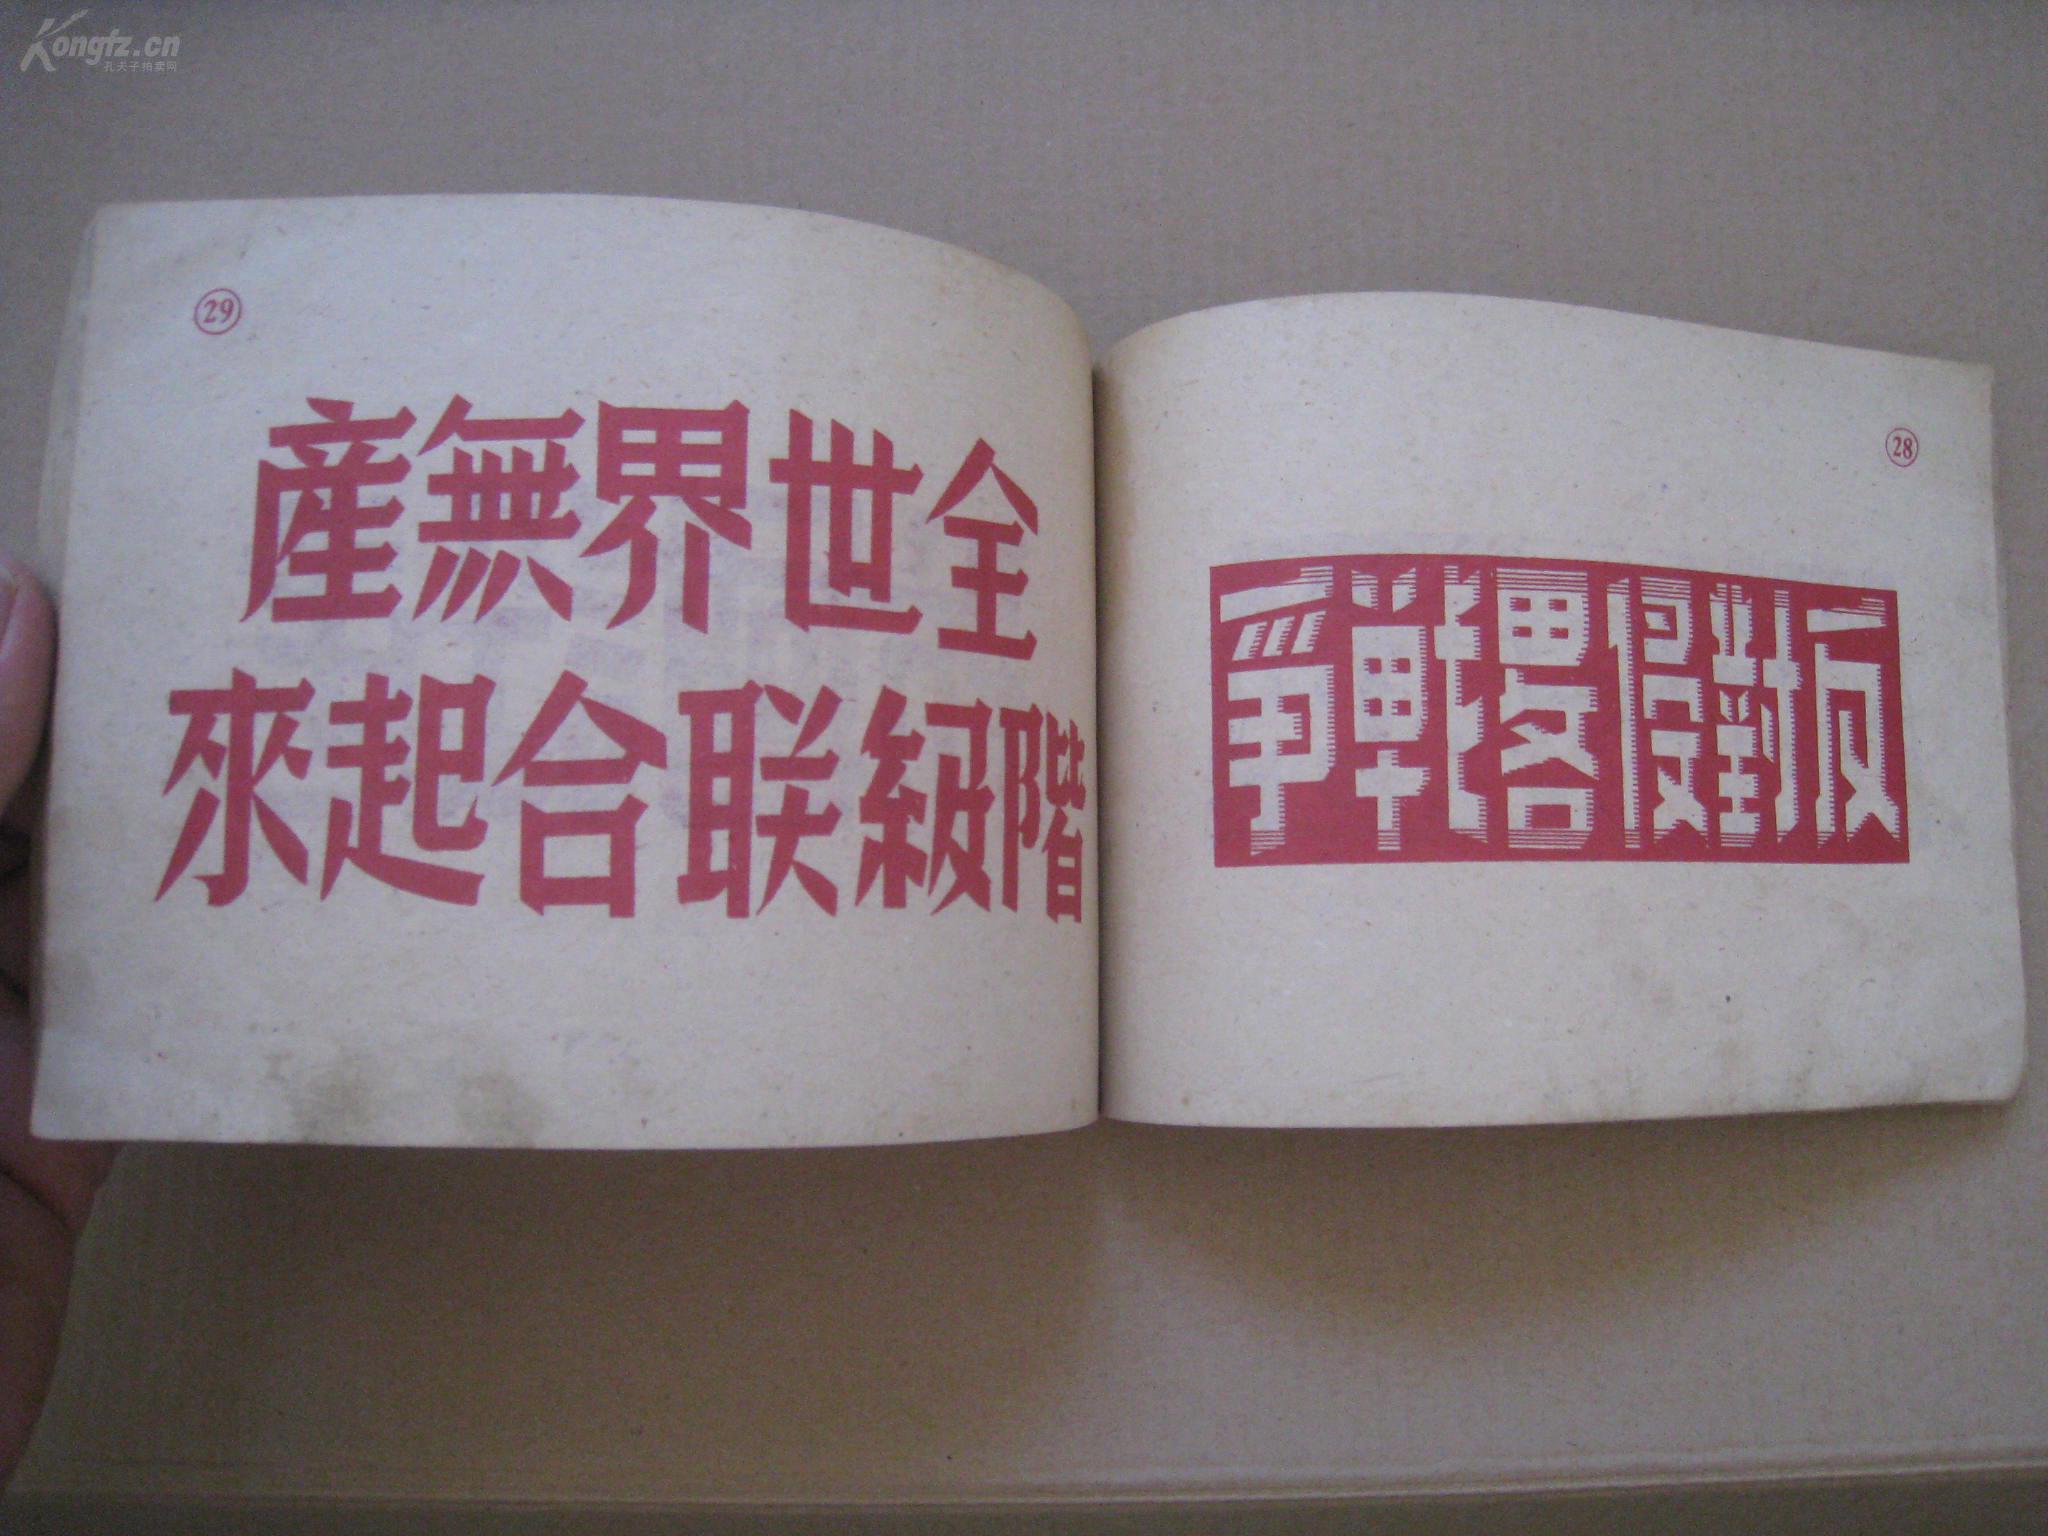 Kongfz.cn
孔夫子拍卖网
28
反對侵畧戰爭
29
全世界無産
階級联合起來